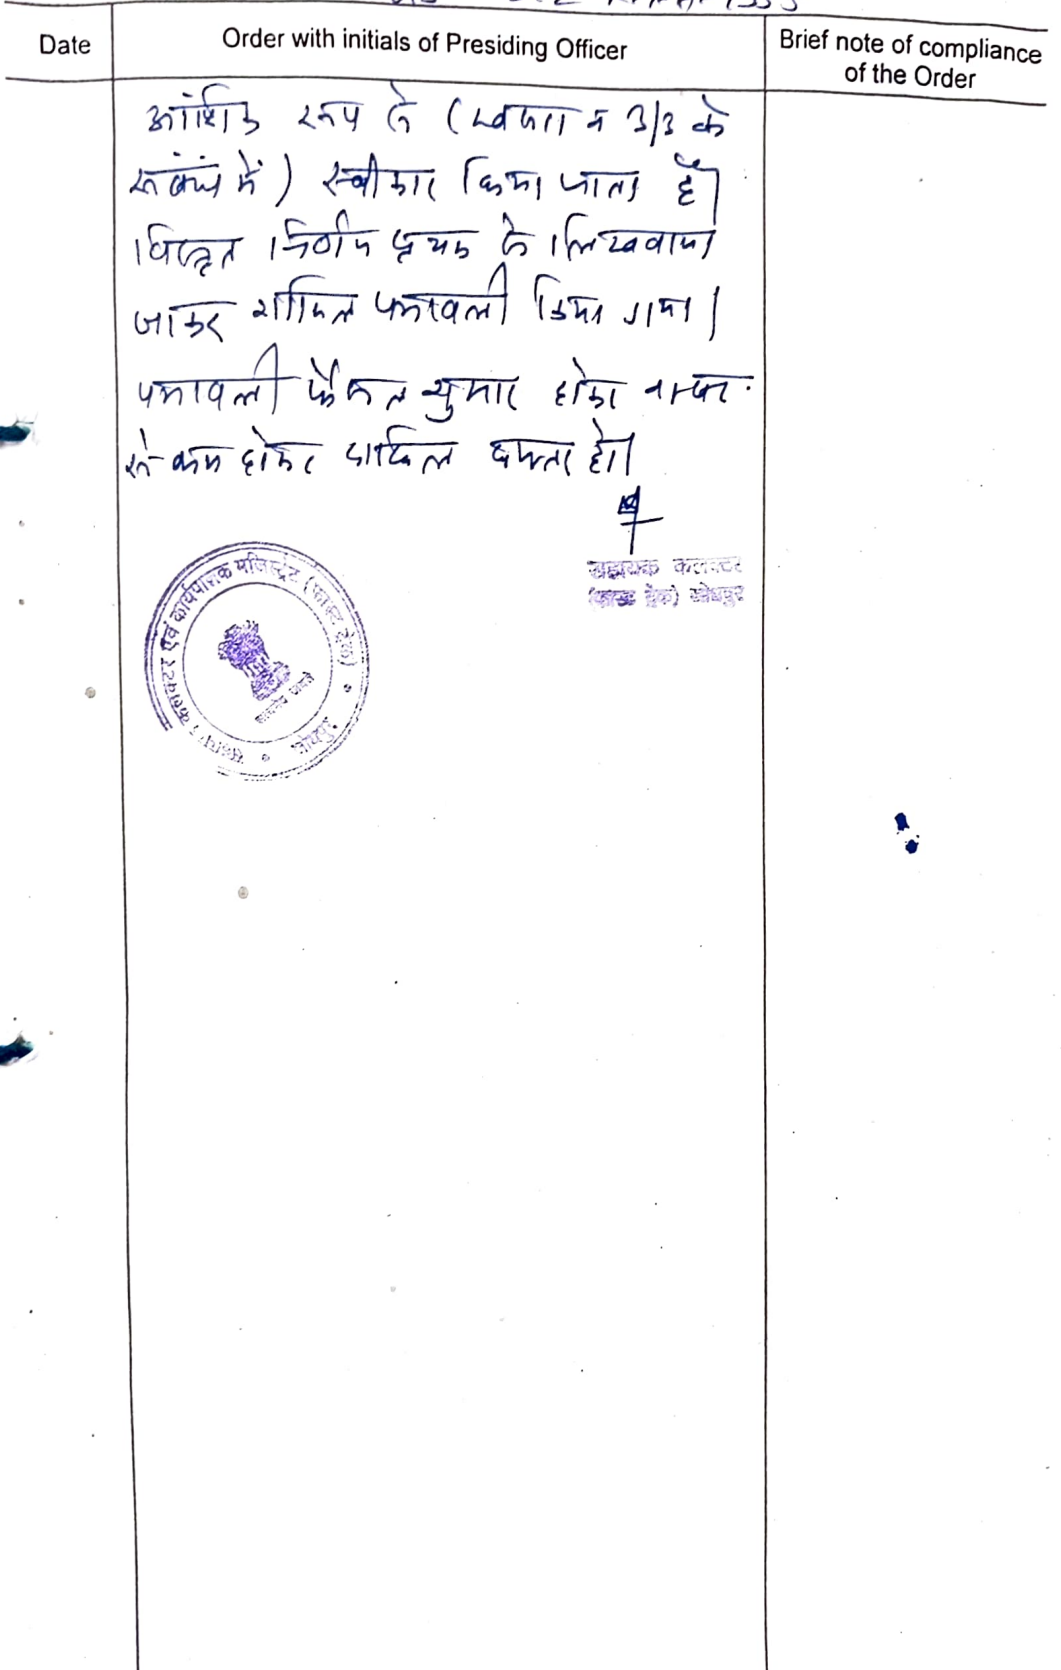 Date
Order with initials of Presiding Officer
Brief note of compliance
of the Order
आंशिक रूप से ( खसरा न 3/3 के
संबंध में ) स्वीकार किया जाता है।
विस्तृत निर्णय पृथक से लिखवाया
जाकर शामिल पत्रावली किया गया।
पत्रावली फैसल शुमार होकर नम्बर
से कम होकर दाखिल दफ्तर हो।
सहायक कलक्टर
(फास्ट ट्रेक) जोधपुर
कलक्टर एवं कार्यपालक मजिस्ट्रेट (फास्ट ट्रेक)